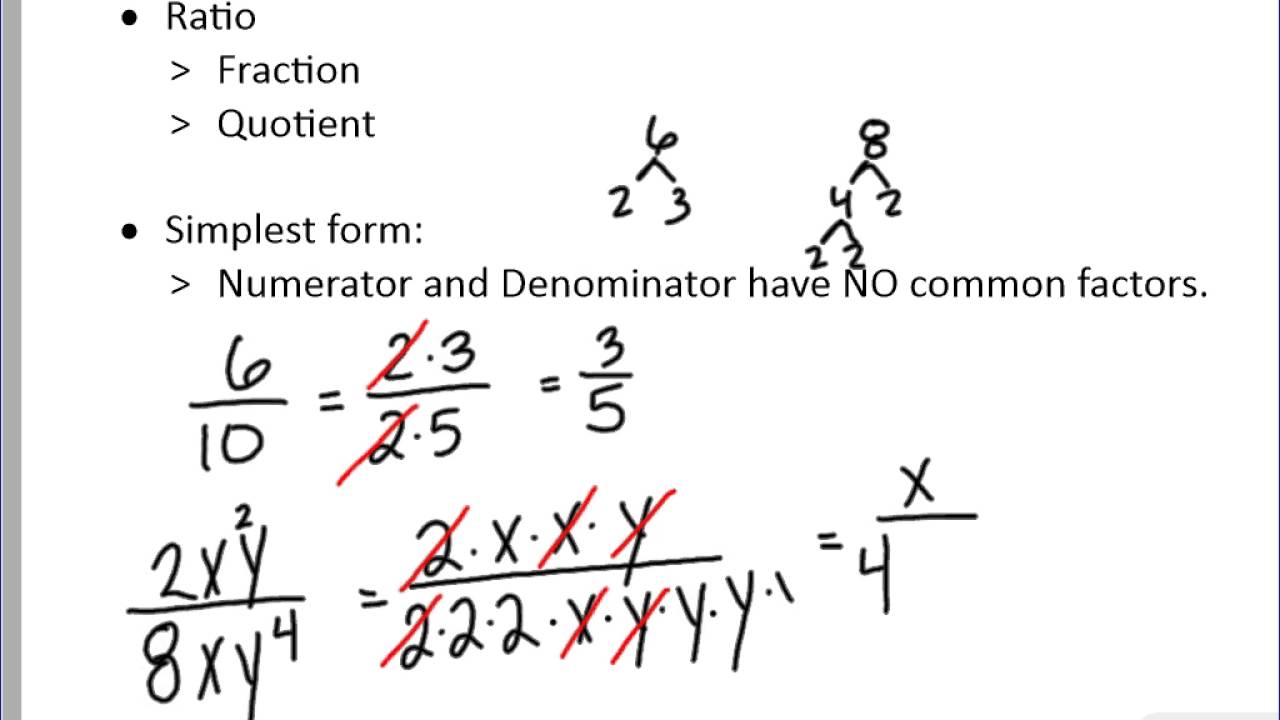 • Ratio
> Fraction
> Quotient
6
2 3
8
4 2
2 2
• Simplest form:
> Numerator and Denominator have NO common factors.
6/10 = 2·3/2·5 = 3/5
2x²y/8xy⁴ = 2·x·x·y/2·2·2·x·y·y·y·1 = x/4